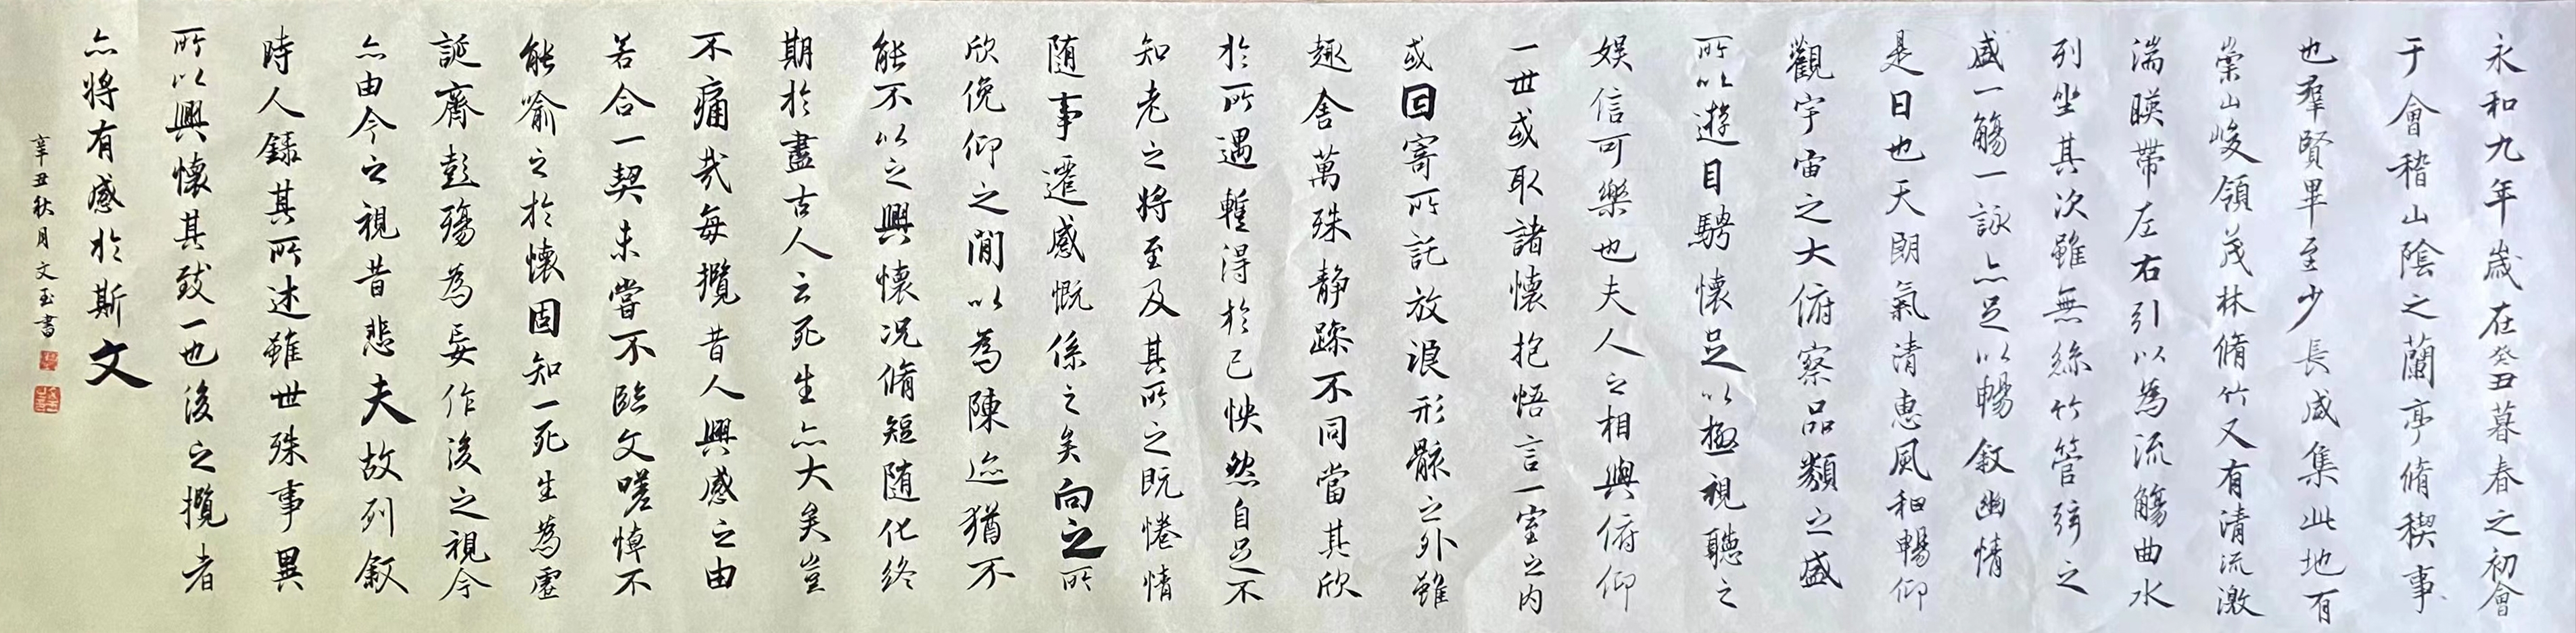 永和九年歲在癸丑暮春之初會
于會稽山陰之蘭亭脩稧事
也羣賢畢至少長咸集此地有
崇山峻領茂林脩竹又有清流激
湍暎帶左右引以為流觴曲水
列坐其次雖無絲竹管弦之
盛一觴一詠亦足以暢敘幽情
是日也天朗氣清惠風和暢仰
觀宇宙之大俯察品類之盛
所以遊目騁懷足以極視聽之
娛信可樂也夫人之相與俯仰
一世或取諸懷抱悟言一室之內
或因寄所託放浪形骸之外雖
趣舍萬殊静躁不同當其欣
於所遇蹔得於己怏然自足不
知老之將至及其所之既惓情
随事遷感慨係之矣向之所
欣俛仰之閒以為陳迹猶不
能不以之興懷況脩短随化終
期於盡古人云死生亦大矣豈
不痛哉每攬昔人興感之由
若合一契未嘗不臨文嗟悼不
能喻之於懷固知一死生為虛
誕齊彭殤為妄作後之視今
亦由今之視昔悲夫故列敘
時人錄其所述雖世殊事異
所以興懷其致一也後之攬者
亦將有感於斯文
辛丑秋月文玉書